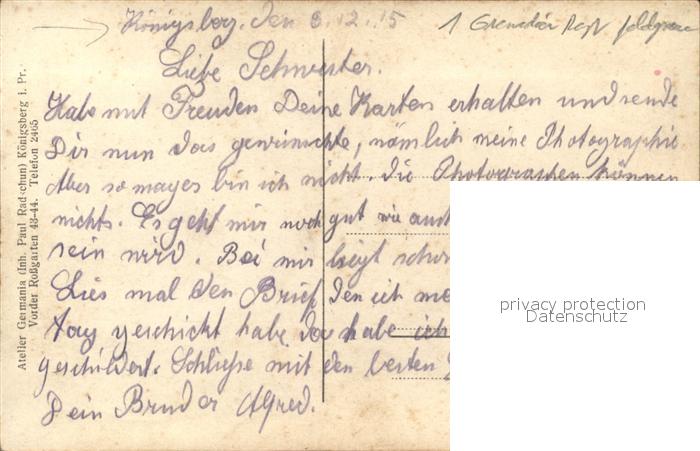 Königsberg, den 8.12.15
1 Grenadier Regt feldgrau
Liebe Schwester.
Habe mit Freuden Deine Karten erhalten und sende
Dir nun das gewünschte, nämlich meine Photographie.
Aber so mager bin ich nicht. Die Photographen können
nichts. Es geht mir noch gut wie auch
sein wird. Bei mir liegt
Lies mal den Brief, den ich
Tag geschickt habe, da habe ich
geschildert. Schließe mit den besten
Dein Bruder Alfred.
Atelier Germania (Inh. Paul Radschun) Königsberg i. Pr.
Vorder Roßgarten 43-44. Telefon 2465
privacy protection
Datenschutz